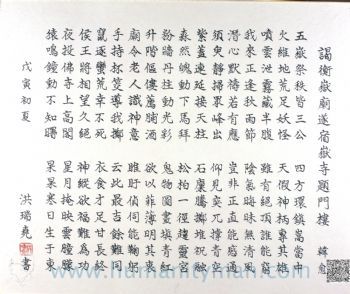 謁衡嶽廟遂宿嶽寺題門樓 韓愈
五嶽祭秩皆三公 四方環鎮嵩當中
火維地荒足妖怪 天假神柄專其雄
噴雲泄霧藏半腹 雖有絕頂誰能窮
我來正逢秋雨節 陰氣晦昧無清風
潛心默禱若有應 豈非正直能感通
須臾靜掃眾峰出 仰見突兀撐青空
紫蓋連延接天柱 石廩騰擲堆祝融
森然魄動下馬拜 松柏一徑趨靈宮
粉牆丹柱動光彩 鬼物圖畫填青紅
升階傴僂薦脯酒 欲以菲薄明其衷
廟令老人識神意 睢盱偵伺能鞠躬
手持杯珓導我擲 云此最吉餘難同
竄逐蠻荒幸不死 衣食才足甘長終
侯王將相望久絕 神縱欲福難為功
夜投佛寺上高閣 星月掩映雲朣朧
猿鳴鐘動不知曙 杲杲寒日生於東
戊寅初夏 洪瑞堯書
www.humanityman.com